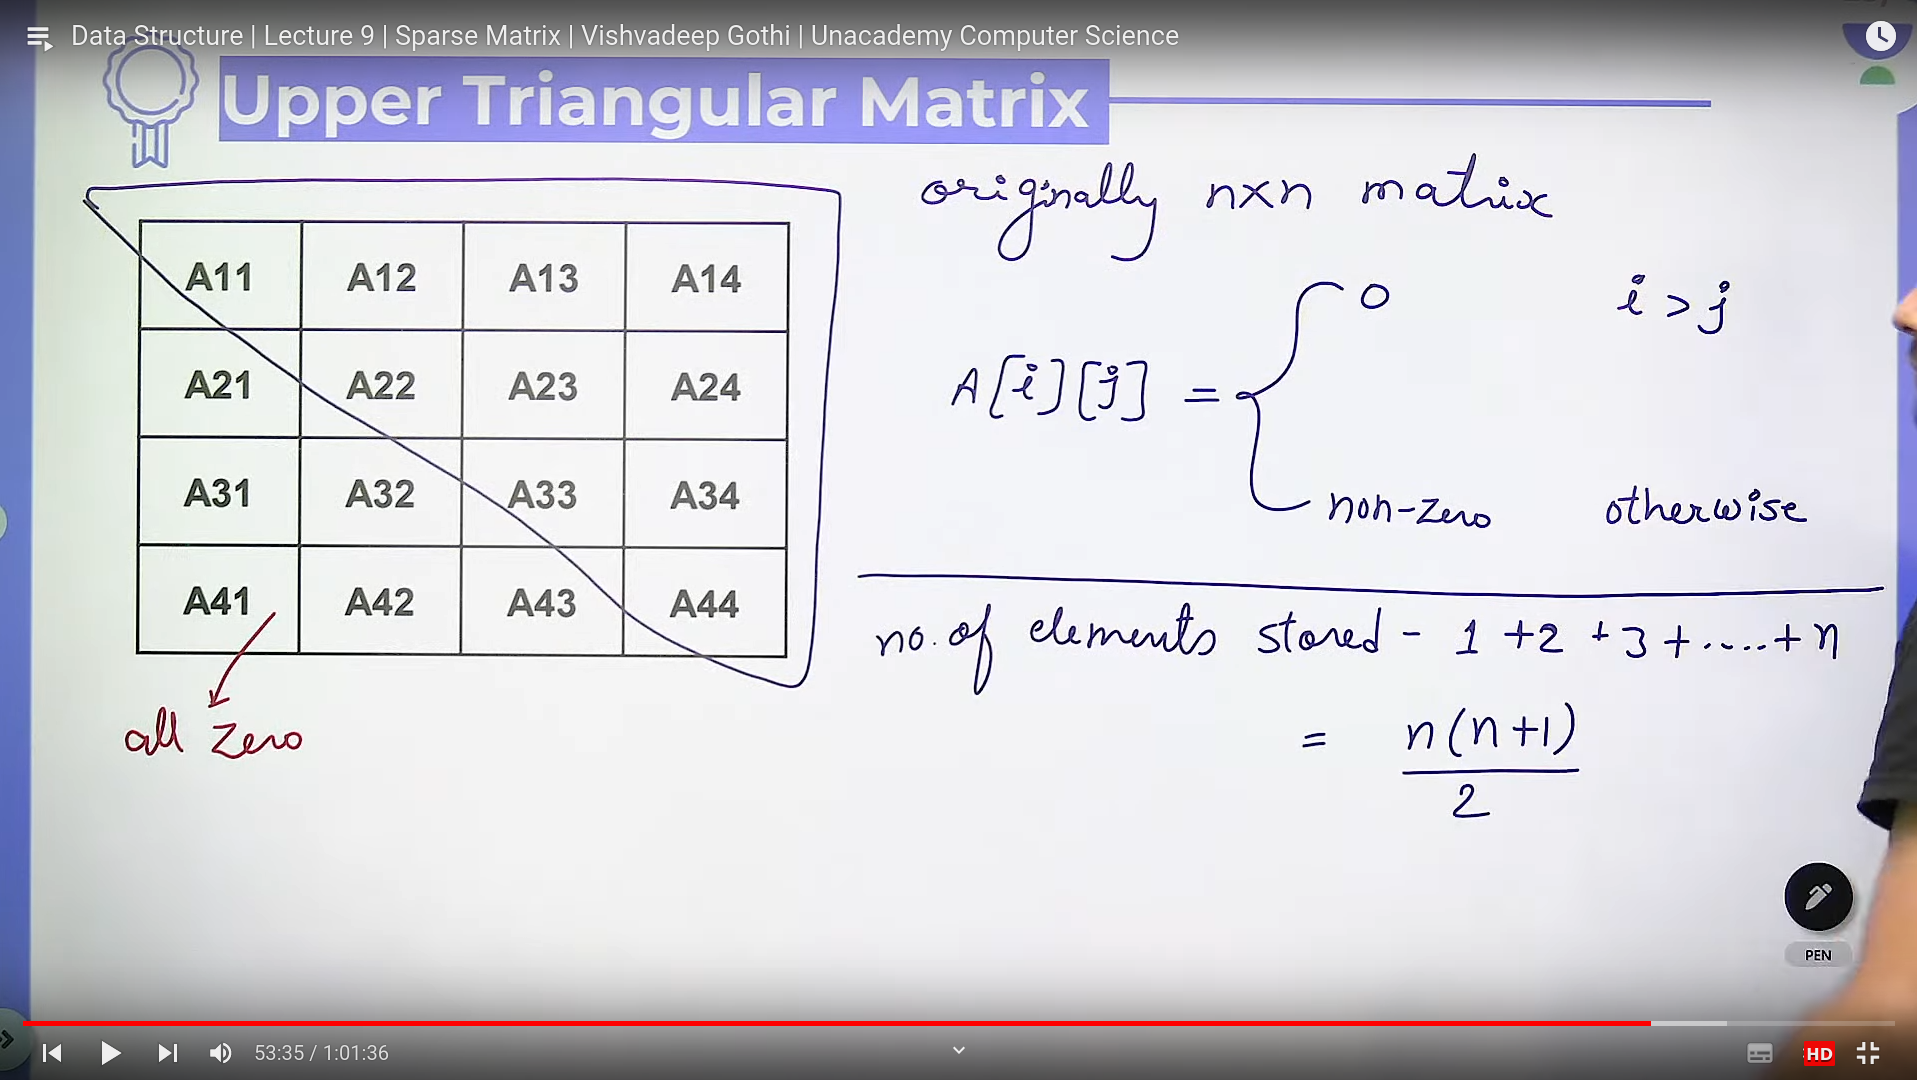 Data Structure | Lecture 9 | Sparse Matrix | Vishvadeep Gothi | Unacademy Computer Science
Upper Triangular Matrix
originally n×n matrix
A11 A12 A13 A14
A21 A22 A23 A24
A31 A32 A33 A34
A41 A42 A43 A44
all zero
A[i][j] =
0 i > j
non-zero otherwise
no. of elements stored - 1 + 2 + 3 + ..... + n
= n(n+1)
2
PEN
53:35 / 1:01:36
HD